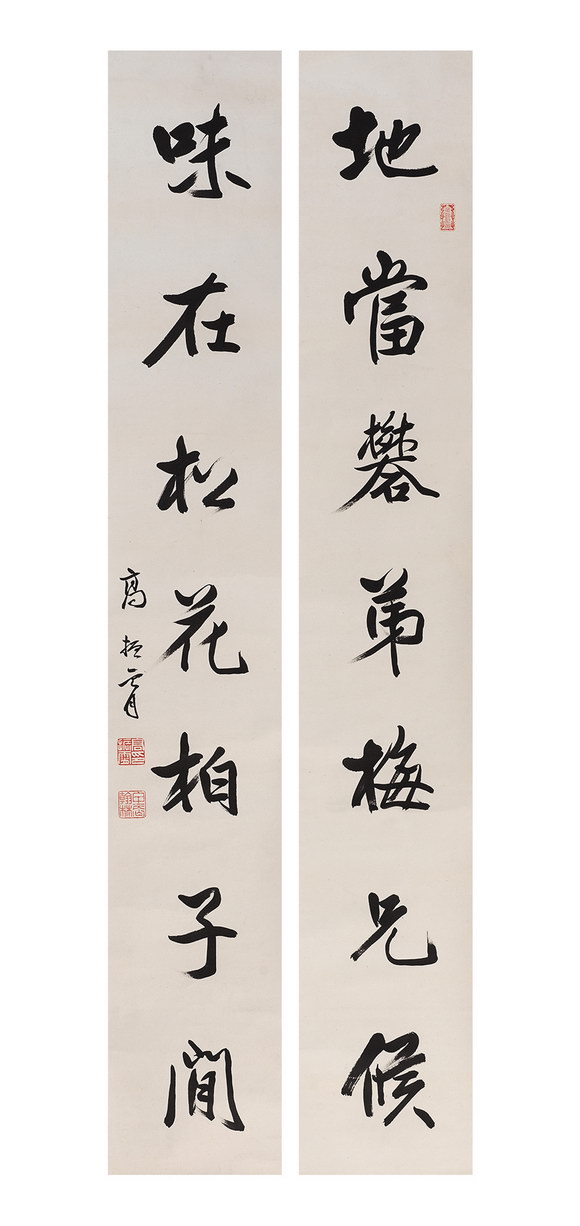 地當礬弟梅兄候
味在松花柏子間
高振霄